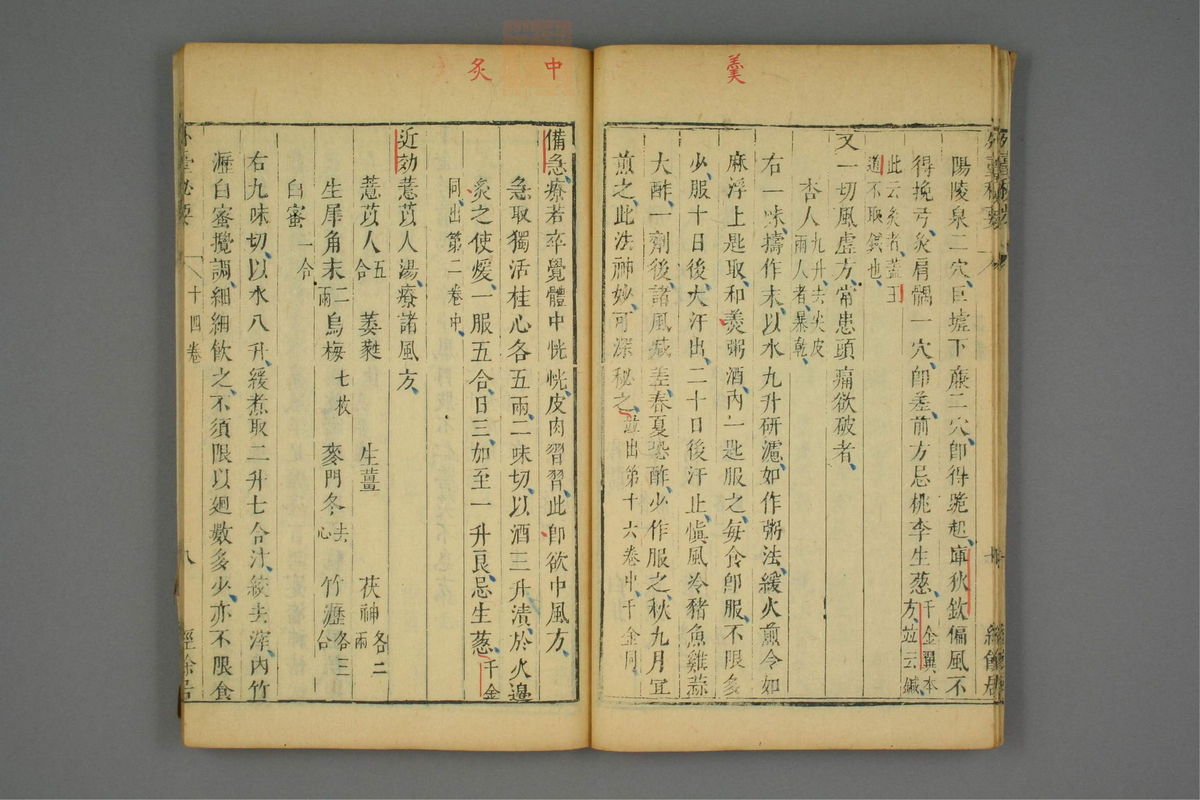 羹
陽陵泉二穴巨墟下廉二穴卽得跪起庫狄欽偏風不
得挽弓灸肩髃一穴卽差前方忌桃李生葱千金翼本方竝云鍼
此云灸者蓋王道不取鍼也
又一切風虛方常患頭痛欲破者
杏人九升去尖皮兩人者暴乾
右一味擣作末以水九升研濾如作粥法緩火煎令如
麻浮上匙取和羹粥酒內一匙服之每食卽服不限多
少服十日後大汗出二十日後汗止愼風冷豬魚雞蒜
大酢一劑後諸風減差春夏恐酢少作服之秋九月宜
煎之此法神妙可深秘之竝出第十六卷中千金同
中
灸
備急療若卒覺體中恍恍皮肉習習此卽欲中風方
急取獨活桂心各五兩二味切以酒三升漬於火邊
炙之使煖一服五合日三加至一升良忌生葱千金
同出第二卷中
近効薏苡人湯療諸風方
薏苡人五合 萎蕤 生薑 茯神各二兩
生犀角末二兩 烏梅七枚 麥門冬去心 竹瀝各三合
白蜜一合
右九味切以水八升緩煮取二升七合汁絞去滓內竹
瀝白蜜攪調細細飲之不須限以迴數多少亦不限食
外臺秘要
十四卷
八
經餘居